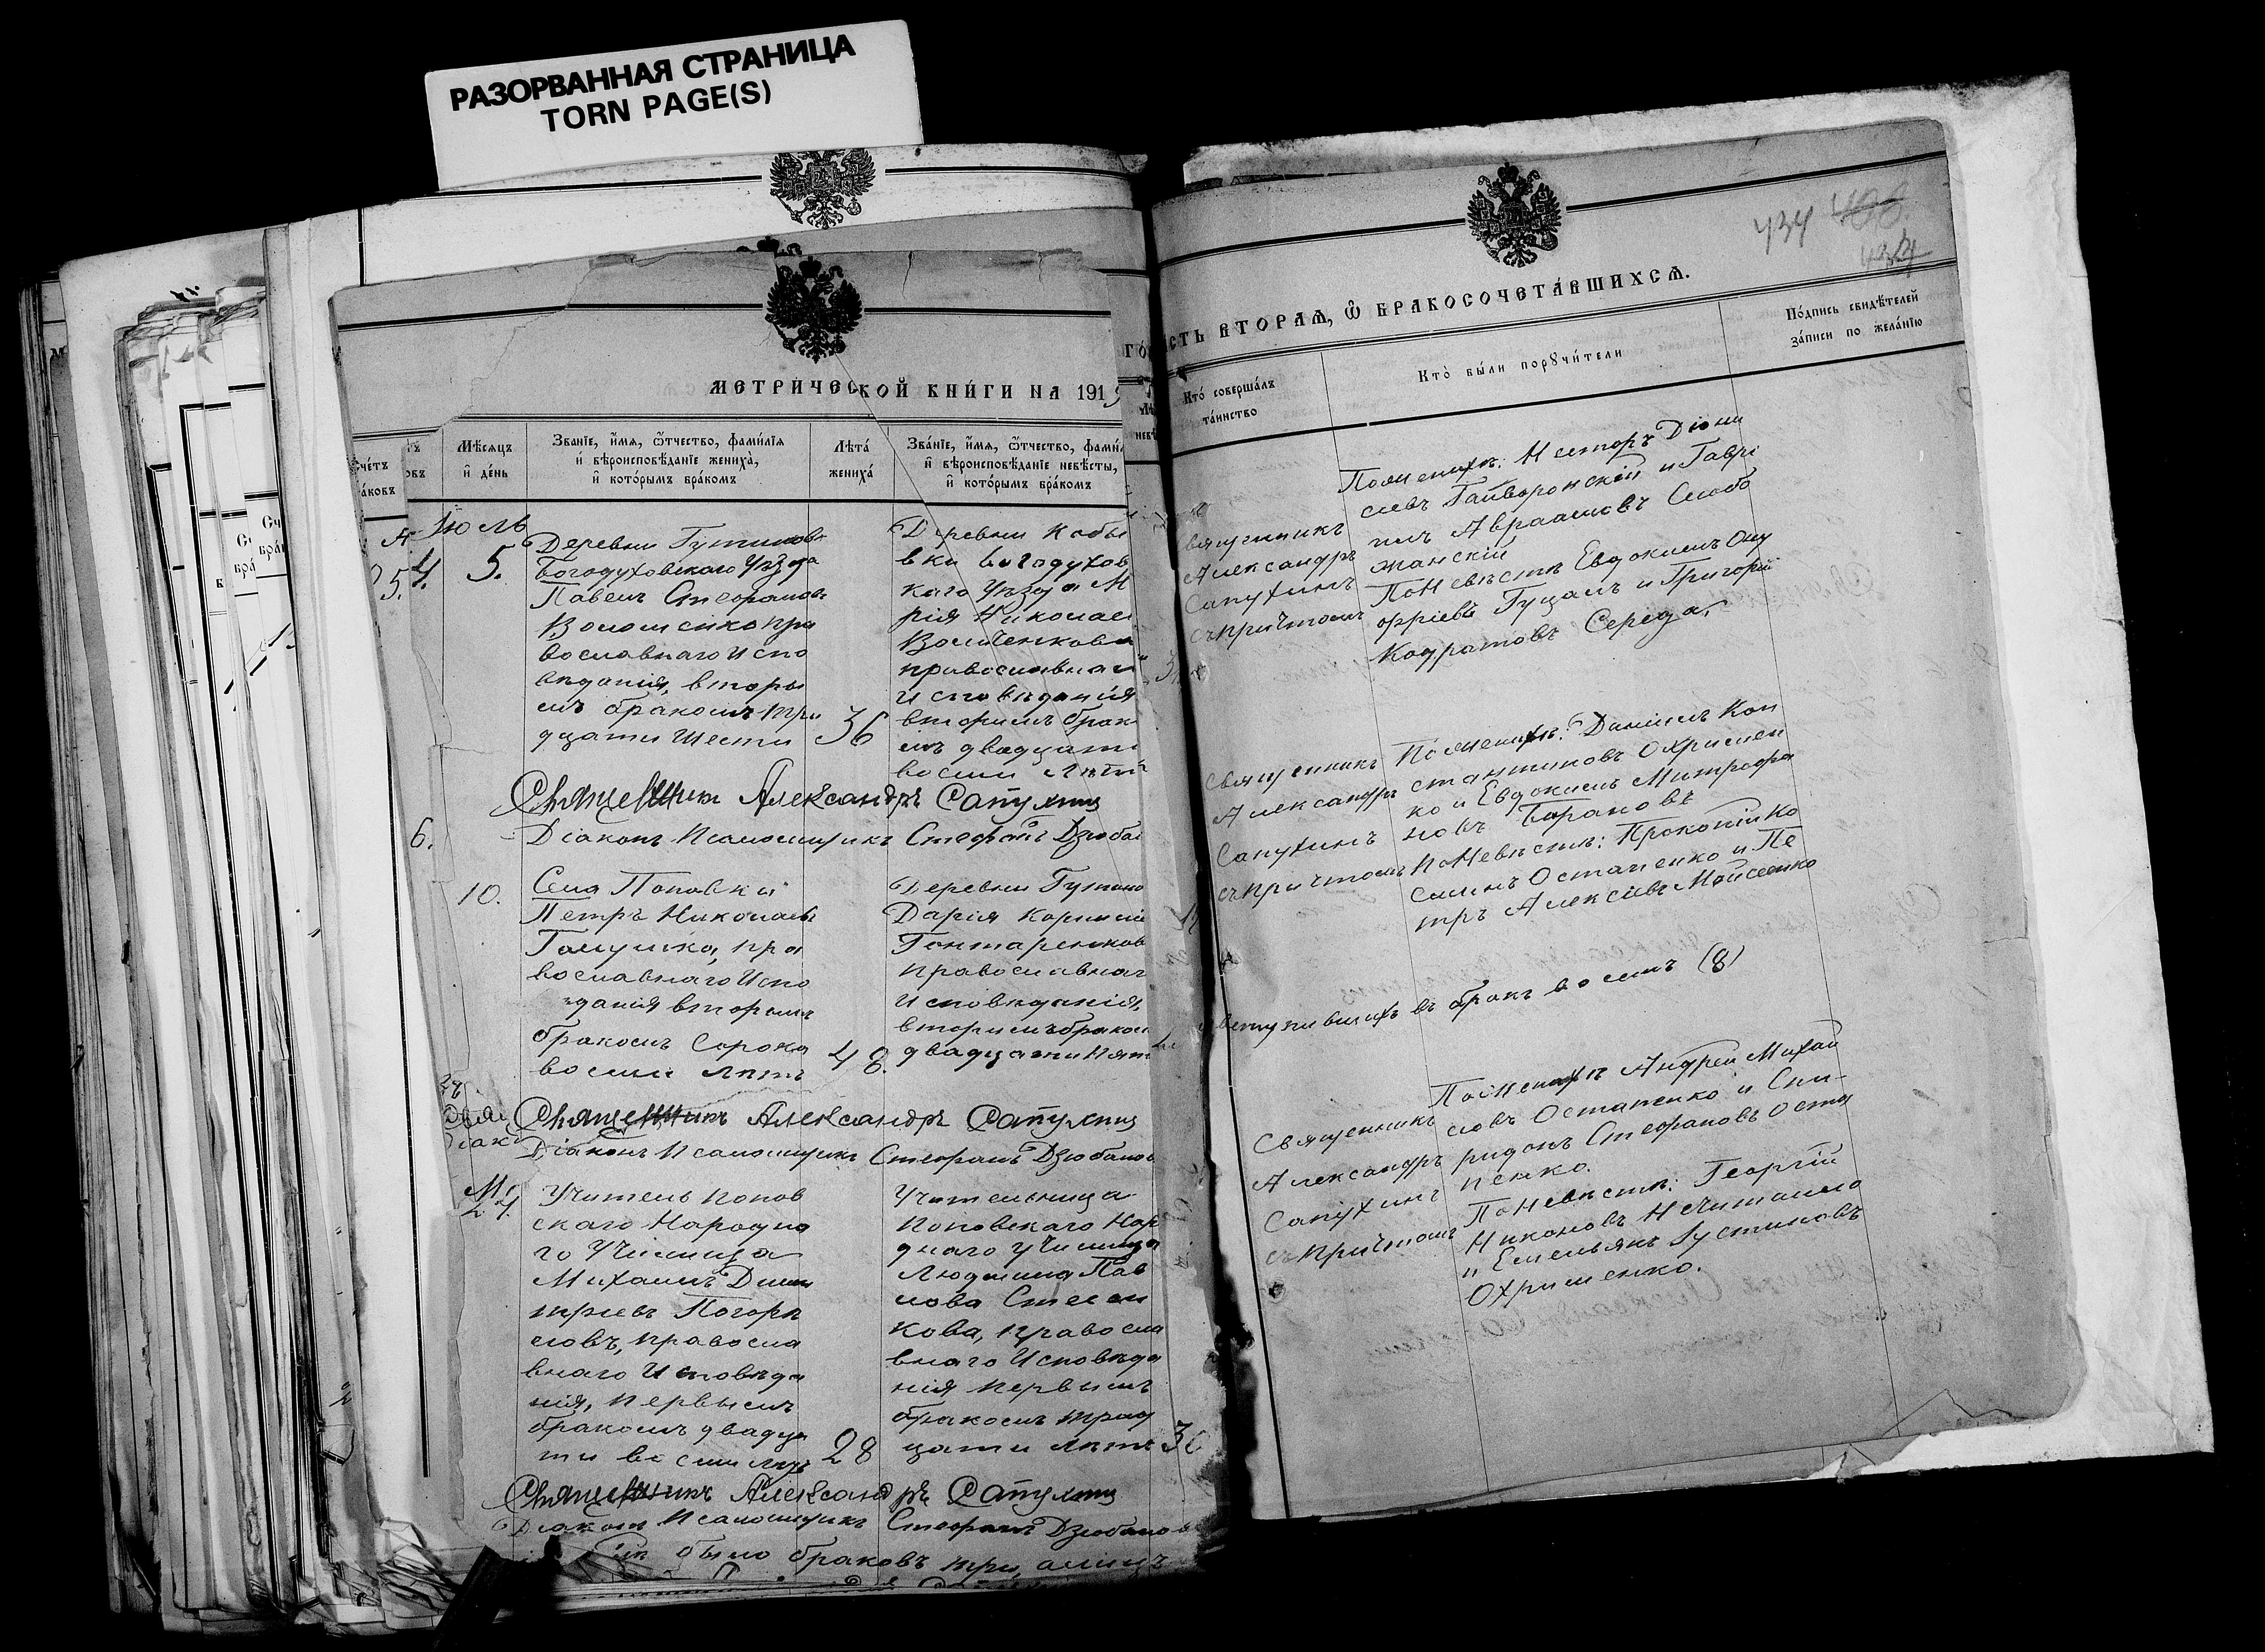 РАЗОРВАННАЯ СТРАНИЦА
TORN PAGE(S)
МЕТРИЧЕСКОЙ КНИГИ НА 191
Счетъ
браковъ
Мѣсяцъ
и день
Званіе, имя, отчество, фамилія
и вѣроисповѣданіе жениха,
и которымъ бракомъ
Лѣта
жениха
Званіе, имя, отчество, фами
и вѣроисповѣданіе невѣсты,
и которымъ бракомъ
Іюль
4.
5.
Деревни
Богодуховскаго Уѣзда
Павелъ Стефановъ
пра
вославнаго Испо
вѣданія, вторы
мъ бракомъ три
дцати шести
36
Деревни Кобы
вки Богодухов
каго Уѣзда М
рія Николаев
православнаго
Исповѣданія
вторымъ брак
мъ двадцати
восьми лѣтъ
Священникъ Александръ Сапухинъ
6.
Діаконъ Псаломщикъ Стефанъ Дзюба
10.
Села Поповки
Петръ Николаев
пра
вославнаго Испо
ѣданія вторымъ
бракомъ Сорока
восьми лѣтъ
48.
Деревни
Дарія Корнилі
Гонтаренков
православнаг
Исповѣданія,
вторымъ бракомъ
двадцати пят
Священникъ Александръ Сапухинъ
Діаконъ Псаломщикъ Стефанъ Дзюбанов
Учитель Попов
скаго Народно
го Училища
Михаилъ Дими
тріевъ Погорѣ
ловъ, правосла
внаго Исповѣда
нія, первымъ
бракомъ двадца
ти восьми лѣтъ
28
Учительница
Поповскаго Нар
днаго училища
Людмила Пав
лова
кова, правосла
внаго Исповѣда
нія первымъ
бракомъ трид
цати лѣтъ
30
Священникъ Александръ Сапухинъ
Діаконъ Псаломщикъ Стефанъ Дзюбанов
было браковъ три, а лицъ
434
СТЬ ВТОРАЯ, Ѡ БРАКОСОЧЕТАВШИХСЯ.
Кто совершалъ
таинство
Кто были поручители
Подпись свидѣтелей
записи по желанію
вященникъ
Александръ
Сапухинъ
съ причтомъ
По Женихѣ: Несторъ Діони
сіевъ Гайворонскій и Гаврі
илъ Авраамовъ Слобо
жанскій
По Невѣстѣ Евдокимъ Ону
фріевъ Гуцалъ и Григорій
Кодратовъ Середа,
Священникъ
Александръ
Сапухинъ
съ причтомъ
По Женихѣ: Даніилъ Кон
стантиновъ Охримен
ко и Евдокимъ Митрофа
новъ Барановъ
По Невѣстѣ: Прокопій Ко
Остапенко и Пе
тръ Алексѣевъ Мойсеенко
вступившихъ въ бракъ восемь (8)
Священникъ
Александръ
Сапухинъ
съ причтомъ
По Женихѣ Андрей Михай
ловъ Остапенко и Спи-
ридонъ Стефановъ Оста
пенко.
По Невѣстѣ: Георгій
Никоновъ Нечитайло
и Емельянъ Іустиновъ
Охрименко.